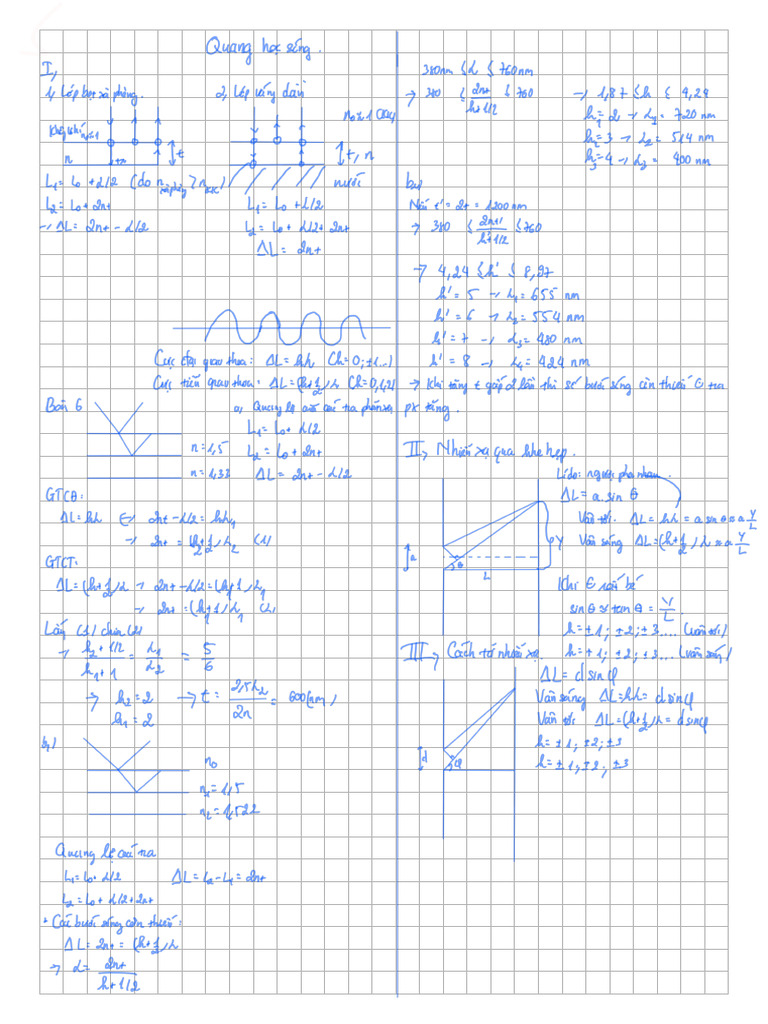 Quang học sóng.
I,
1, Lớp bọt xà phòng.
2, Lớp váng dầu
Không khí n₀≈1
n
t
n₀≈1 (KK)
t, n
nước
L₁ = L₀ + λ/2 (do n xà phòng > n KK)
L₂ = L₀ + 2nt
→ ΔL = 2nt - λ/2
L₁ = L₀ + λ/2
L₂ = L₀ + λ/2 + 2nt
ΔL = 2nt
Cực đại giao thoa: ΔL = kλ (k=0; ±1...)
Cực tiểu giao thoa: ΔL = (k+1/2)λ (k=0,1,2)
Bài 6
a, Quang lộ của các tia phản xạ
L₁ = L₀ + λ/2
n = 1,5
L₂ = L₀ + 2nt
n = 1,33
ΔL = 2nt - λ/2
GTCĐ:
ΔL = kλ ↔ 2nt - λ/2 = kλ
→ 2nt = (k₂+1/2)λ₂ (1)
GTCT:
ΔL = (k+1/2)λ → 2nt - λ/2 = (k₁+1/2)λ₁
→ 2nt = (k₁+1)λ₁ (2)
Lấy (1) chia (2)
→ k₂+1/2 / k₁+1 = λ₁/λ₂ = 5/6
→ k₂ = 2
k₁ = 2
→ t = 2,5λ₂ / 2n = 600 (nm)
b,
n₀
n₁ = 1,5
n₂ = 1,522
Quang lộ của
L₁ = L₀ + λ/2
ΔL = L₂ - L₁ = 2nt
L₂ = L₀ + λ/2 + 2nt
* Các bước sóng còn thiếu:
ΔL = 2nt = (k+1/2)λ
→ λ = 2nt / k+1/2
380nm ≤ λ ≤ 760nm
→ 380 ≤ 2nt / k+1/2 ≤ 760
→ 1,87 ≤ k ≤ 4,24
k₁ = 2 → λ₁ = 720 nm
k₂ = 3 → λ₂ = 514 nm
k₃ = 4 → λ₃ = 400 nm
Nếu t' = 2t = 1200nm
→ 380 ≤ 2nt' / k+1/2 ≤ 760
→ 4,24 ≤ k' ≤ 8,97
k' = 5 → λ₁ = 655 nm
k' = 6 → λ₂ = 554 nm
k' = 7 → λ₃ = 480 nm
k' = 8 → λ₄ = 424 nm
→ Khi tăng t gấp 2 lần thì số bước sóng còn thiếu ở tia
px tăng.
II, Nhiễu xạ qua khe hẹp.
Lí do: ngược pha nhau.
ΔL = a.sin θ
Vân tối: ΔL = kλ = a sin θ ≈ a Y/L
Vân sáng ΔL = (k+1/2)λ ≈ a Y/L
a
θ
L
Y
Khi θ rất bé
sin θ ≈ tan θ = Y/L
k = ±1; ±2; ±3... (vân tối)
k = ±1; ±2; ±3... (vân sáng)
III, Cách tử nhiễu xạ
ΔL = d sin φ
Vân sáng ΔL = kλ = d sin φ
Vân tối ΔL = (k+1/2)λ = d sin φ
d
φ
k = ±1; ±2; ±3
k = ±1; ±2; ±3